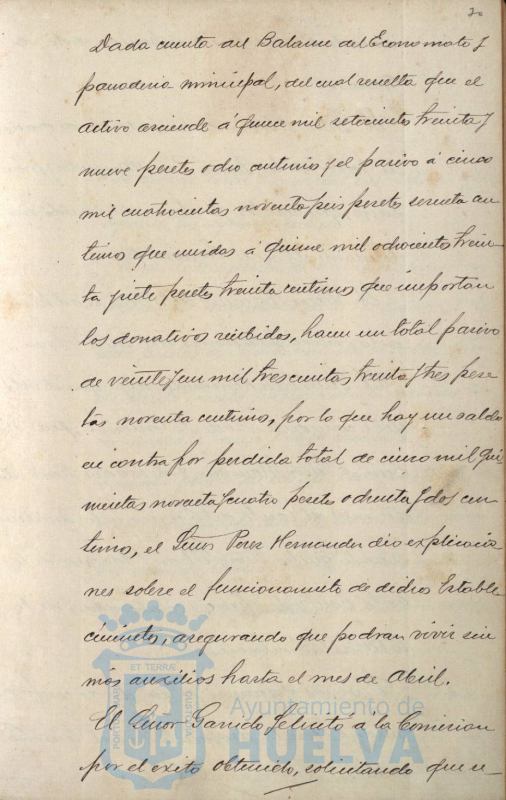 20
Dada cuenta del Balance del Economato y
panaderia municipal, del cual resulta que el
activo asciende á quince mil setecientas treinta y
nueve pesetas ocho centimos y el pasivo á cinco
mil cuatrocientas noventa y seis pesetas sesenta cen
timos que unidas á quince mil ochocientas trein
ta y siete pesetas treinta centimos que importan
los donativos recibidos, hacen un total pasivo
de veinte y un mil trescientas treinta y tres pese
tas noventa centimos, por lo que hay un saldo
en contra por perdida total de cinco mil qui
nientas noventa y cuatro pesetas ochenta y dos cen
timos, el Señor Perez Hernandez dió explicacio
nes sobre el funcionamiento de dichos Estable
cimientos, asegurando que podran vivir sin
más auxilios hasta el mes de Abril.
El Señor Garrido felicitó á la Comision
por el exito obtenido, solicitando que se
PORTUS MARIS ET TERRÆ CUSTODIA
Ayuntamiento de
HUELVA